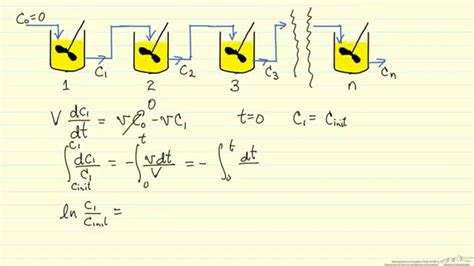 C₀=0
C₁ C₂ C₃ Cₙ
1 2 3 n
V dC₁/dt = vC₀ - vC₁ 0 t=0 C₁ = Cinit
∫_{Cinit}^{C₁} dC₁/C₁ = -∫_0^t vdt/V = -∫_0^t dt/
ln C₁/Cinit =